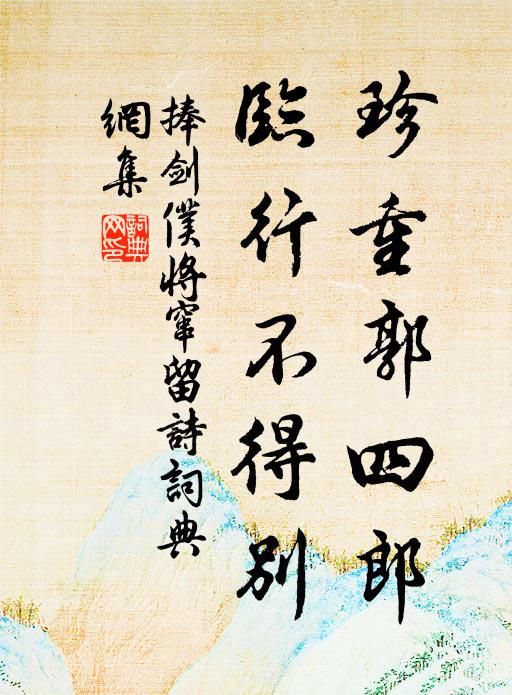 珍重郭四郎
臨行不得別
捧劍僕將竄留詩詞典
網集
詞典
网印